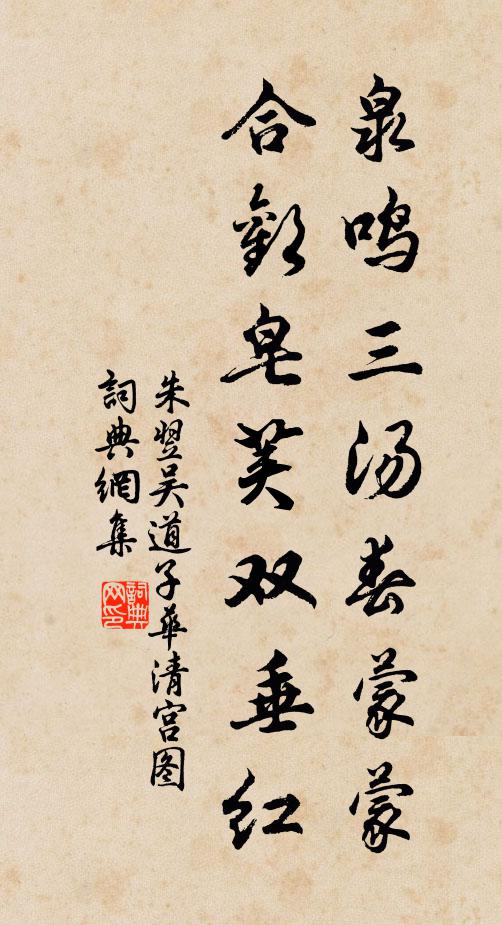 泉鸣三汤春蒙蒙
合欢皂荚双垂红
朱翌吴道子华清宫图
詞典網集
詞典网印